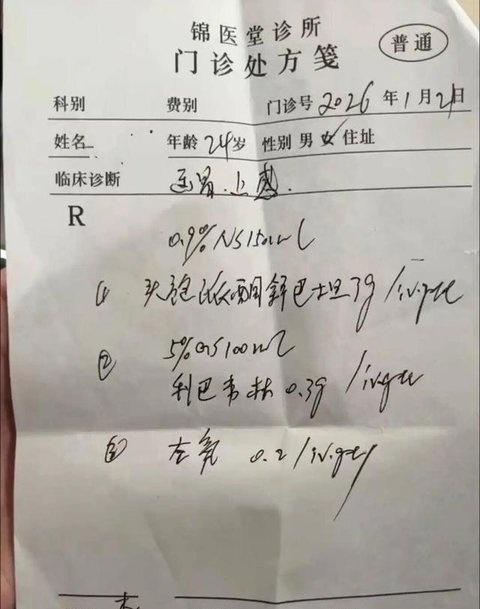 锦医堂诊所
门诊处方笺
普通
科别 费别 门诊号 2026年1月21日
姓名 年龄 24岁 性别 男 女 住址
临床诊断 上感.
R
0.9% NS 150ml
① 头孢哌酮舒巴坦 3g / iv.gtt
② 5% GS 100ml
利巴韦林 0.3g / iv.gtt
③ 左氧 0.2 / iv.gtt